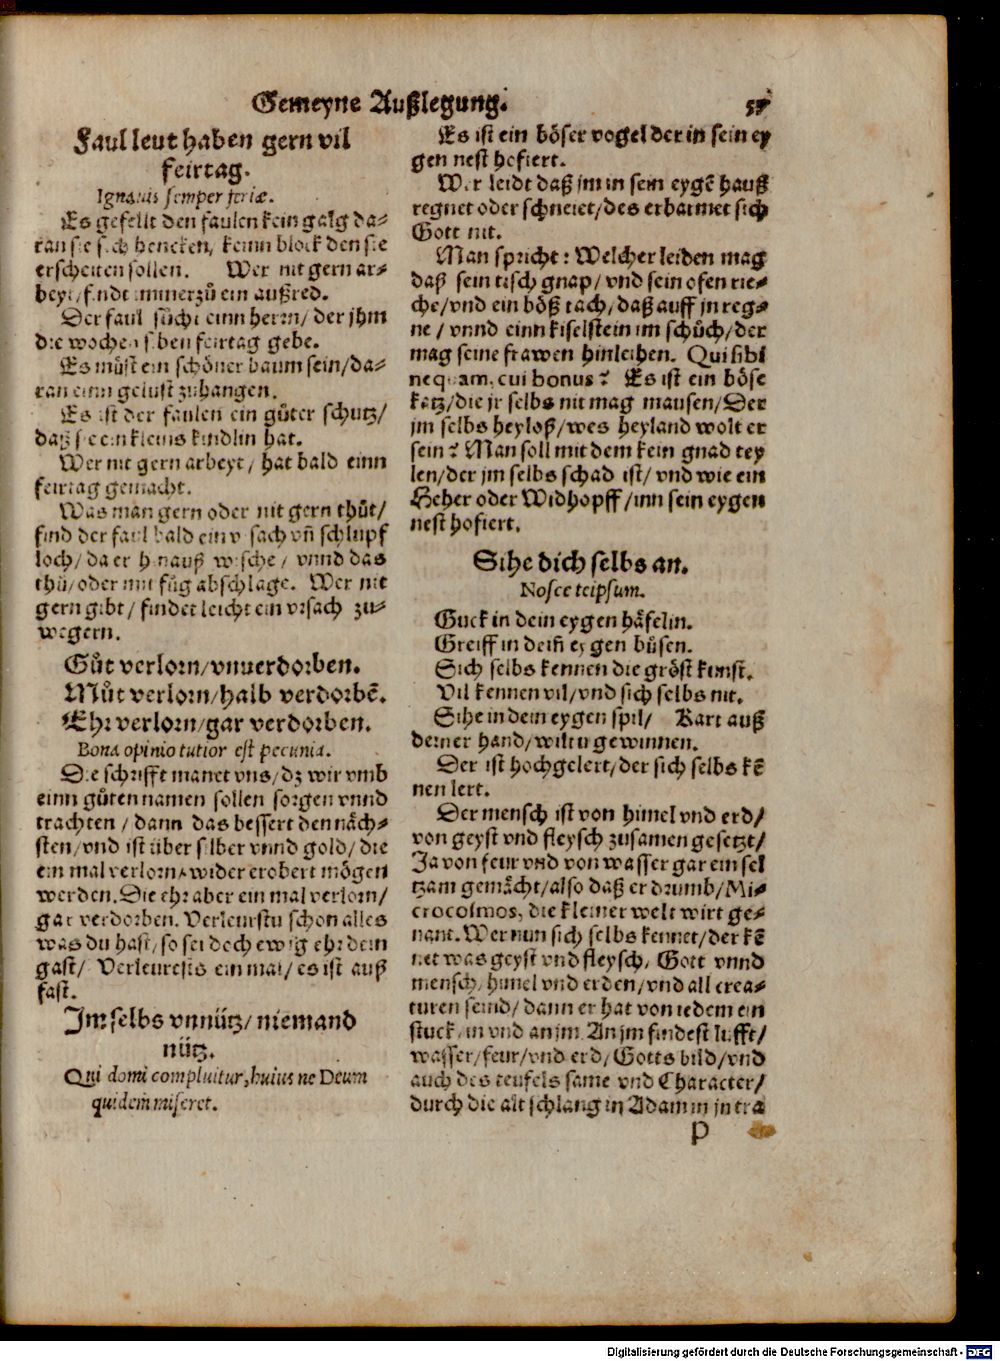 Gemeyne Außlegung.
57
Faul leut haben gern vil
feirtag.
Ignauis semper feriæ.
Es gefellt den faulen kein galg da⸗
ran sie sich hencken, keinn block den sie
erscheiten sollen. Wer nit gern ar⸗
beyt/findt immerzů ein außred.
Der faul sůcht einn herrn/der jhm
die wochen siben feirtag gebe.
Es můst ein schöner baum sein/da⸗
ran einn gelust zuhangen.
Es ist der faulen ein gůter schutz/
daß sie ein kleins kindlin hat.
Wer nit gern arbeyt/hat bald einn
feirtag gemacht.
Was man gern oder nit gern thůt/
find der faul bald ein vrsach vñ schlupf
loch/da er hinauß wische/vnnd das
thü/oder mit fůg abschlage. Wer nit
gern gibt/findet leicht ein vrsach zu⸗
wegern.
Gůt verlorn/vnuerdorben.
Můt verlorn/halb verdorbē.
Ehr verlorn/gar verdorben.
Bona opinio tutior est pecunia.
Die schrifft manet vns/dz wir vmb
einn gůten namen sollen sorgen vnnd
trachten/dann das bessert den näch⸗
sten/vnd ist über silber vnnd gold/die
ein mal verlorn/wider erobert mögen
werden. Die ehr aber ein mal verlorn/
gar verdorben. Verleurstu schon alles
was du hast/so sei doch ewig ehr dein
gast/ Verleurests ein mal/es ist auß
fast.
Im selbs vnnütz/niemand
nütz.
Qui domi compluitur, huius ne Deum
quidem miseret.
Es ist ein böser vogel der in sein ey
gen nest hofiert.
Wer leidt daß jm in sein eygē hauß
regnet oder schneiet/des erbarmet sich
Gott nit.
Man spricht: Welcher leiden mag
daß sein tisch gnap/vnd sein ofen rie⸗
che/vnd ein böß tach/daß auff jn reg⸗
ne/vnnd einn kiselstein im schůch/der
mag seine frawen hinleihen. Qui sibi
nequam, cui bonus? Es ist ein böse
katz/die jr selbs nit mag mausen/Der
jm selbs heyloß/wes heyland wolt er
sein? Man soll mit dem kein gnad tey
len/der jm selbs schad ist/vnd wie ein
Heher oder Widhopff/inn sein eygen
nest hofiert.
Sihe dich selbs an.
Nosce teipsum.
Guck in dein eygen häfelin.
Greiff in dein eygen bůsen.
Sich selbs kennen die gröst kunst.
Vil kennen vil/vnd sich selbs nit.
Sihe in dein eygen spil/ Kart auß
deiner hand/wiltu gewinnen.
Der ist hochgelert/der sich selbs kē
nen lert.
Der mensch ist von himel vnd erd/
von geyst vnd fleysch zusamen gesetzt/
Ja von feur vnd von wasser gar ein sel
tzam gemächt/also daß er drumb/Mi⸗
crocosmos, die kleiner welt wirt ge⸗
nant. Wer nun sich selbs kennet/der kē
net was geyst vnd fleysch, Gott vnnd
mensch/himel vnd erden/vnd all crea⸗
turen seind/dann er hat von iedem ein
stuck in vnd an jm. An jm findest lufft/
wasser/feur/vnd erd/Gotts bild/vnd
auch des teufels same vnd Character/
durch die alt schlang in Adam in jn tra
P
Digitalisierung gefördert durch die Deutsche Forschungsgemeinschaft - DFG